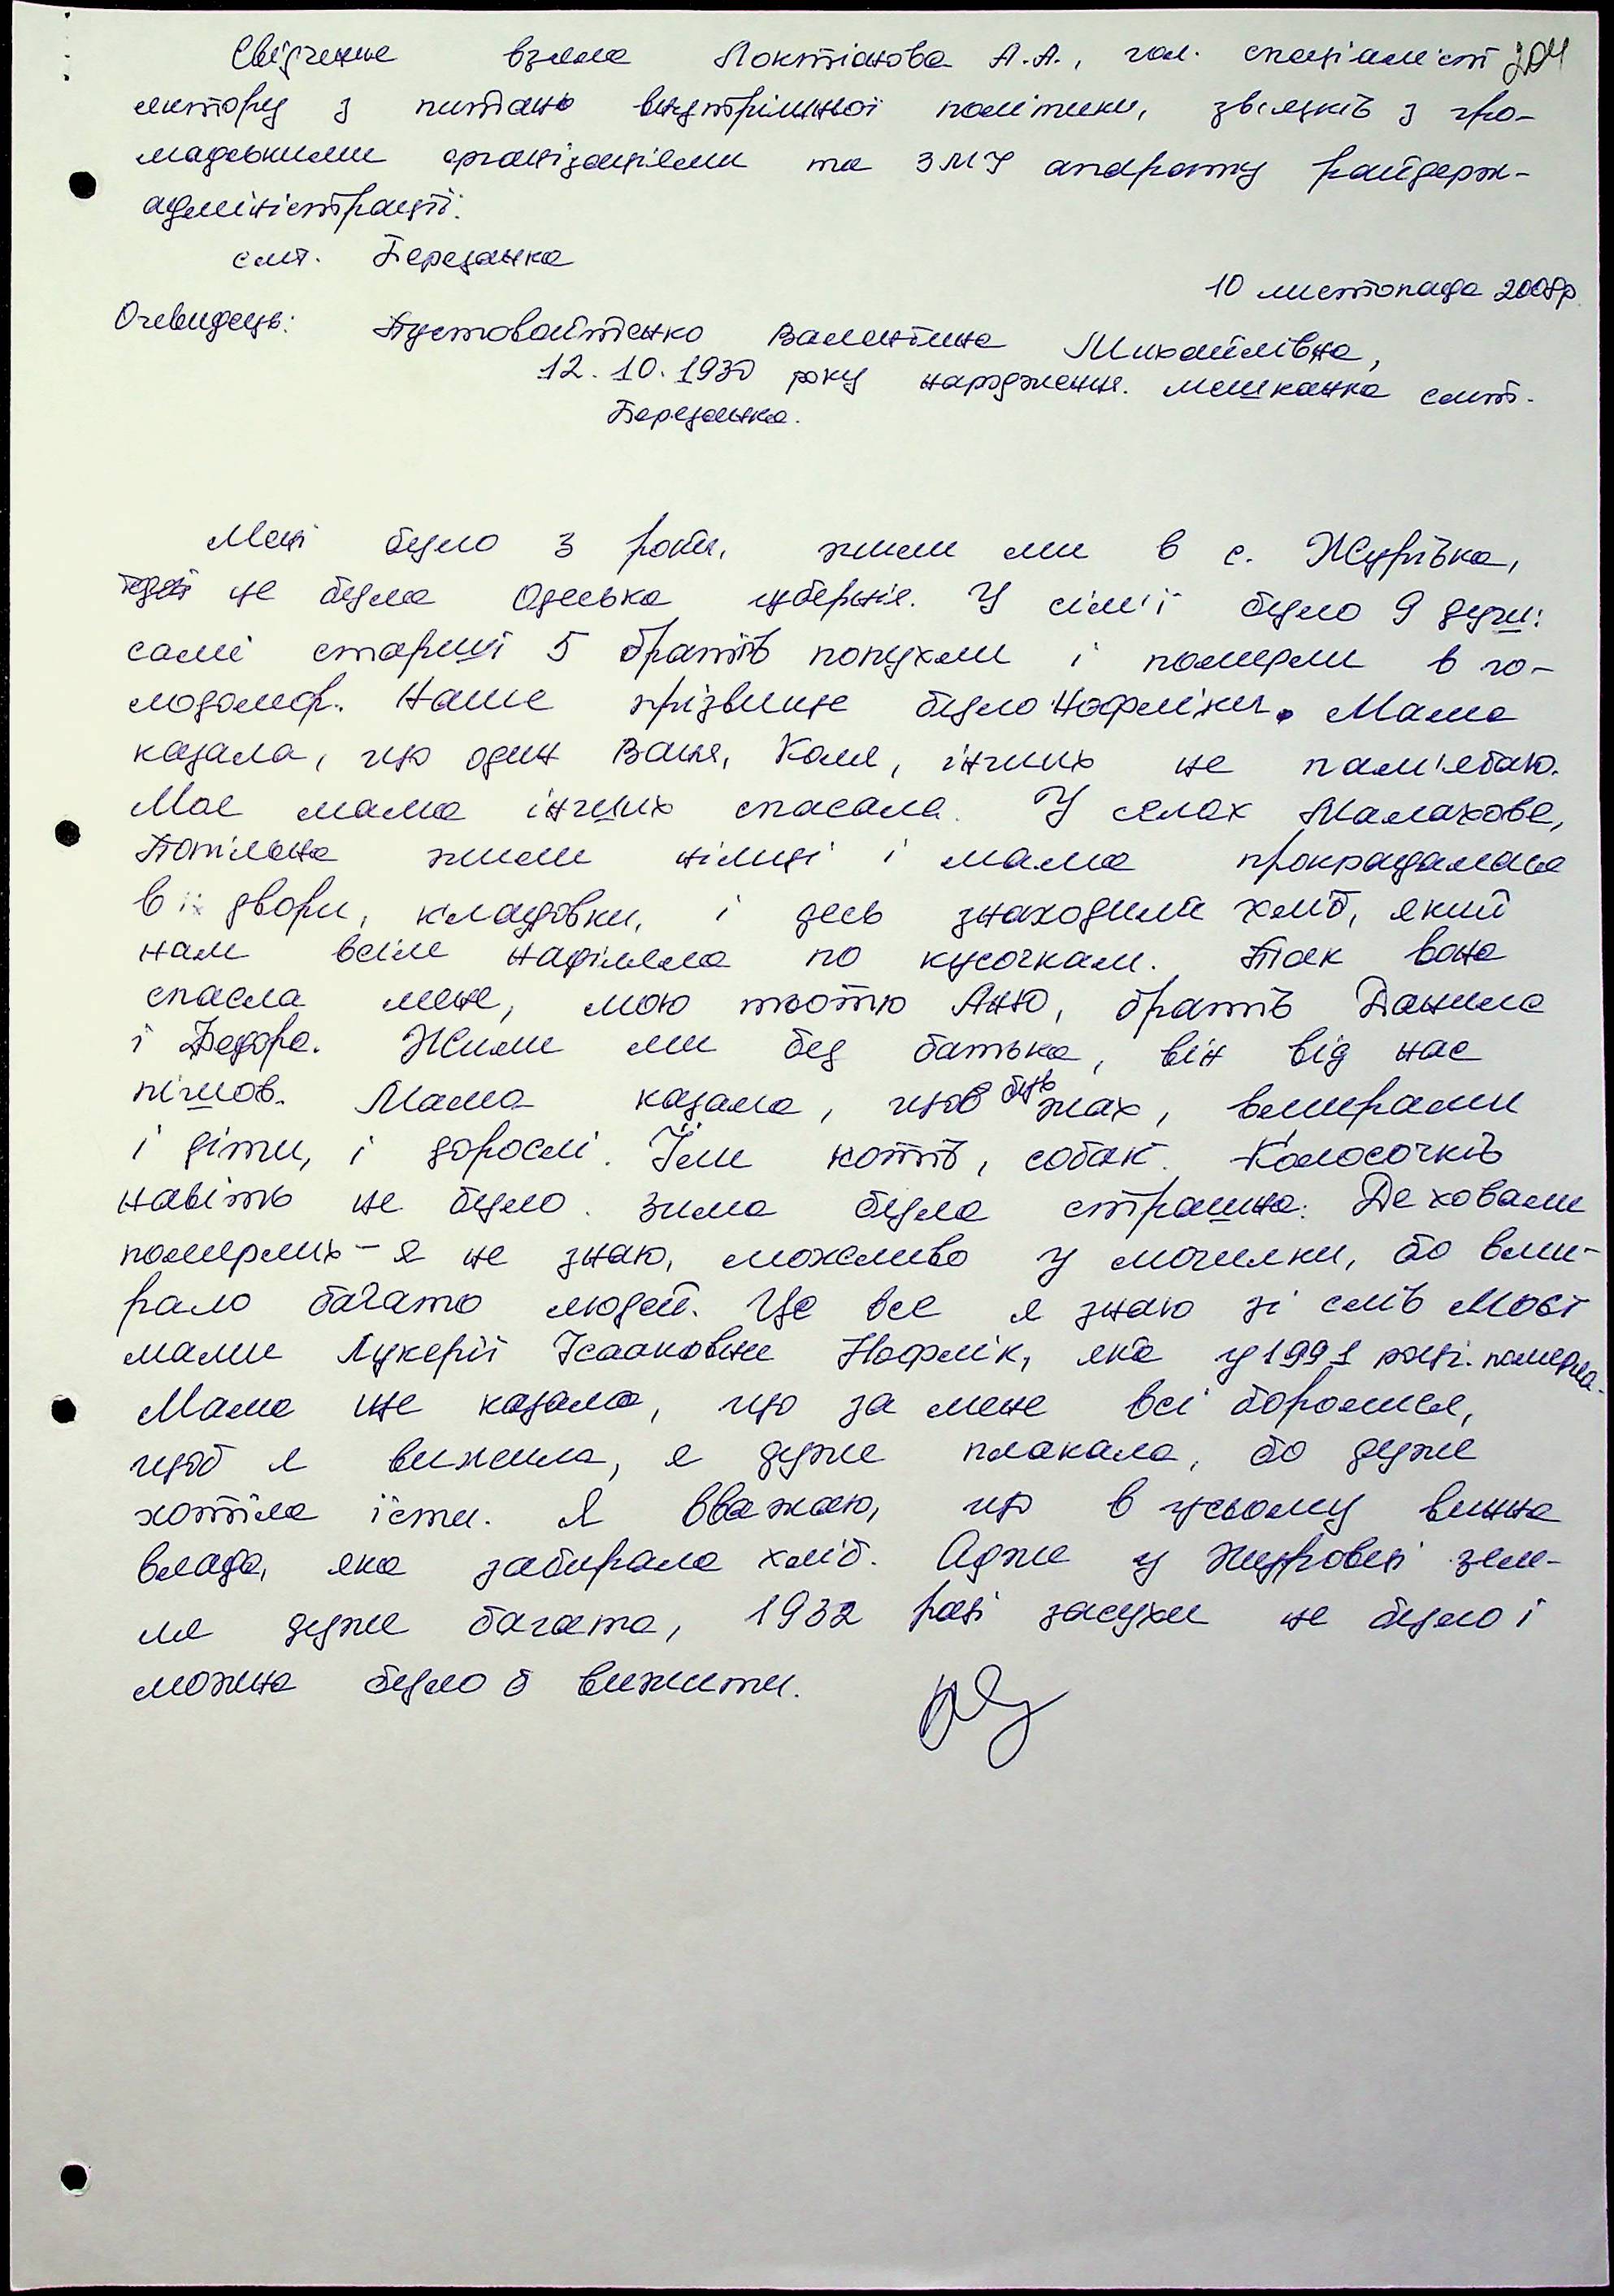 Свідчення взяла Локтіонова А.А., гол. спеціаліст 204
сектору з питань внутрішньої політики, звязків з гро-
мадськими організаціями та ЗМІ апарату райдерж-
адміністрації.
смт. Березанка
10 листопада 2008р.
Очевидець: Пустовойтенко Валентина Михайлівна,
12.10.1930 року народження. мешканка смт.
Березанка.
Мені було 3 роки, жили ми в с. Журівка,
тоді це була Одеська губернія. У сім'ї було 9 душ:
самі старші 5 братів попухли і померли в го-
лодомор. Наше прізвище було Нофліки. Мама
казала, що один Ваня, Коля, інших не пам'ятаю.
Моє мама інших спасала. У селах Малахово,
Потільна жили німці і мама прокрадалася
в їх двори, кладовки, і десь знаходила хліб, який
нам всім наділяла по кусочкам. Так вона
спасла мене, мою тьотю Аню, братів Данила
і Федора. Жили ми без батька, він від нас
пішов. Мама казала, що був жах, вмирали
і діти, і дорослі. Їли котів, собак. Колосочків
навіть не було. Зима була страшна. Де ховали
померлих - я не знаю, можливо у могилки, бо вми-
рало багато людей. Це все я знаю зі слів моєї
мами Лукерії Ісааковни Нофлік, яка у 1991 році померла.
Мама ще казала, що за мене всі боролися,
щоб я вижила, я дуже плакала, бо дуже
хотіла їсти. Я вважаю, що в цьому винна
влада, яка забирала хліб. Адже у Журовці зем-
ля дуже багата, 1932 році засухи не було і
можна було б вижити.